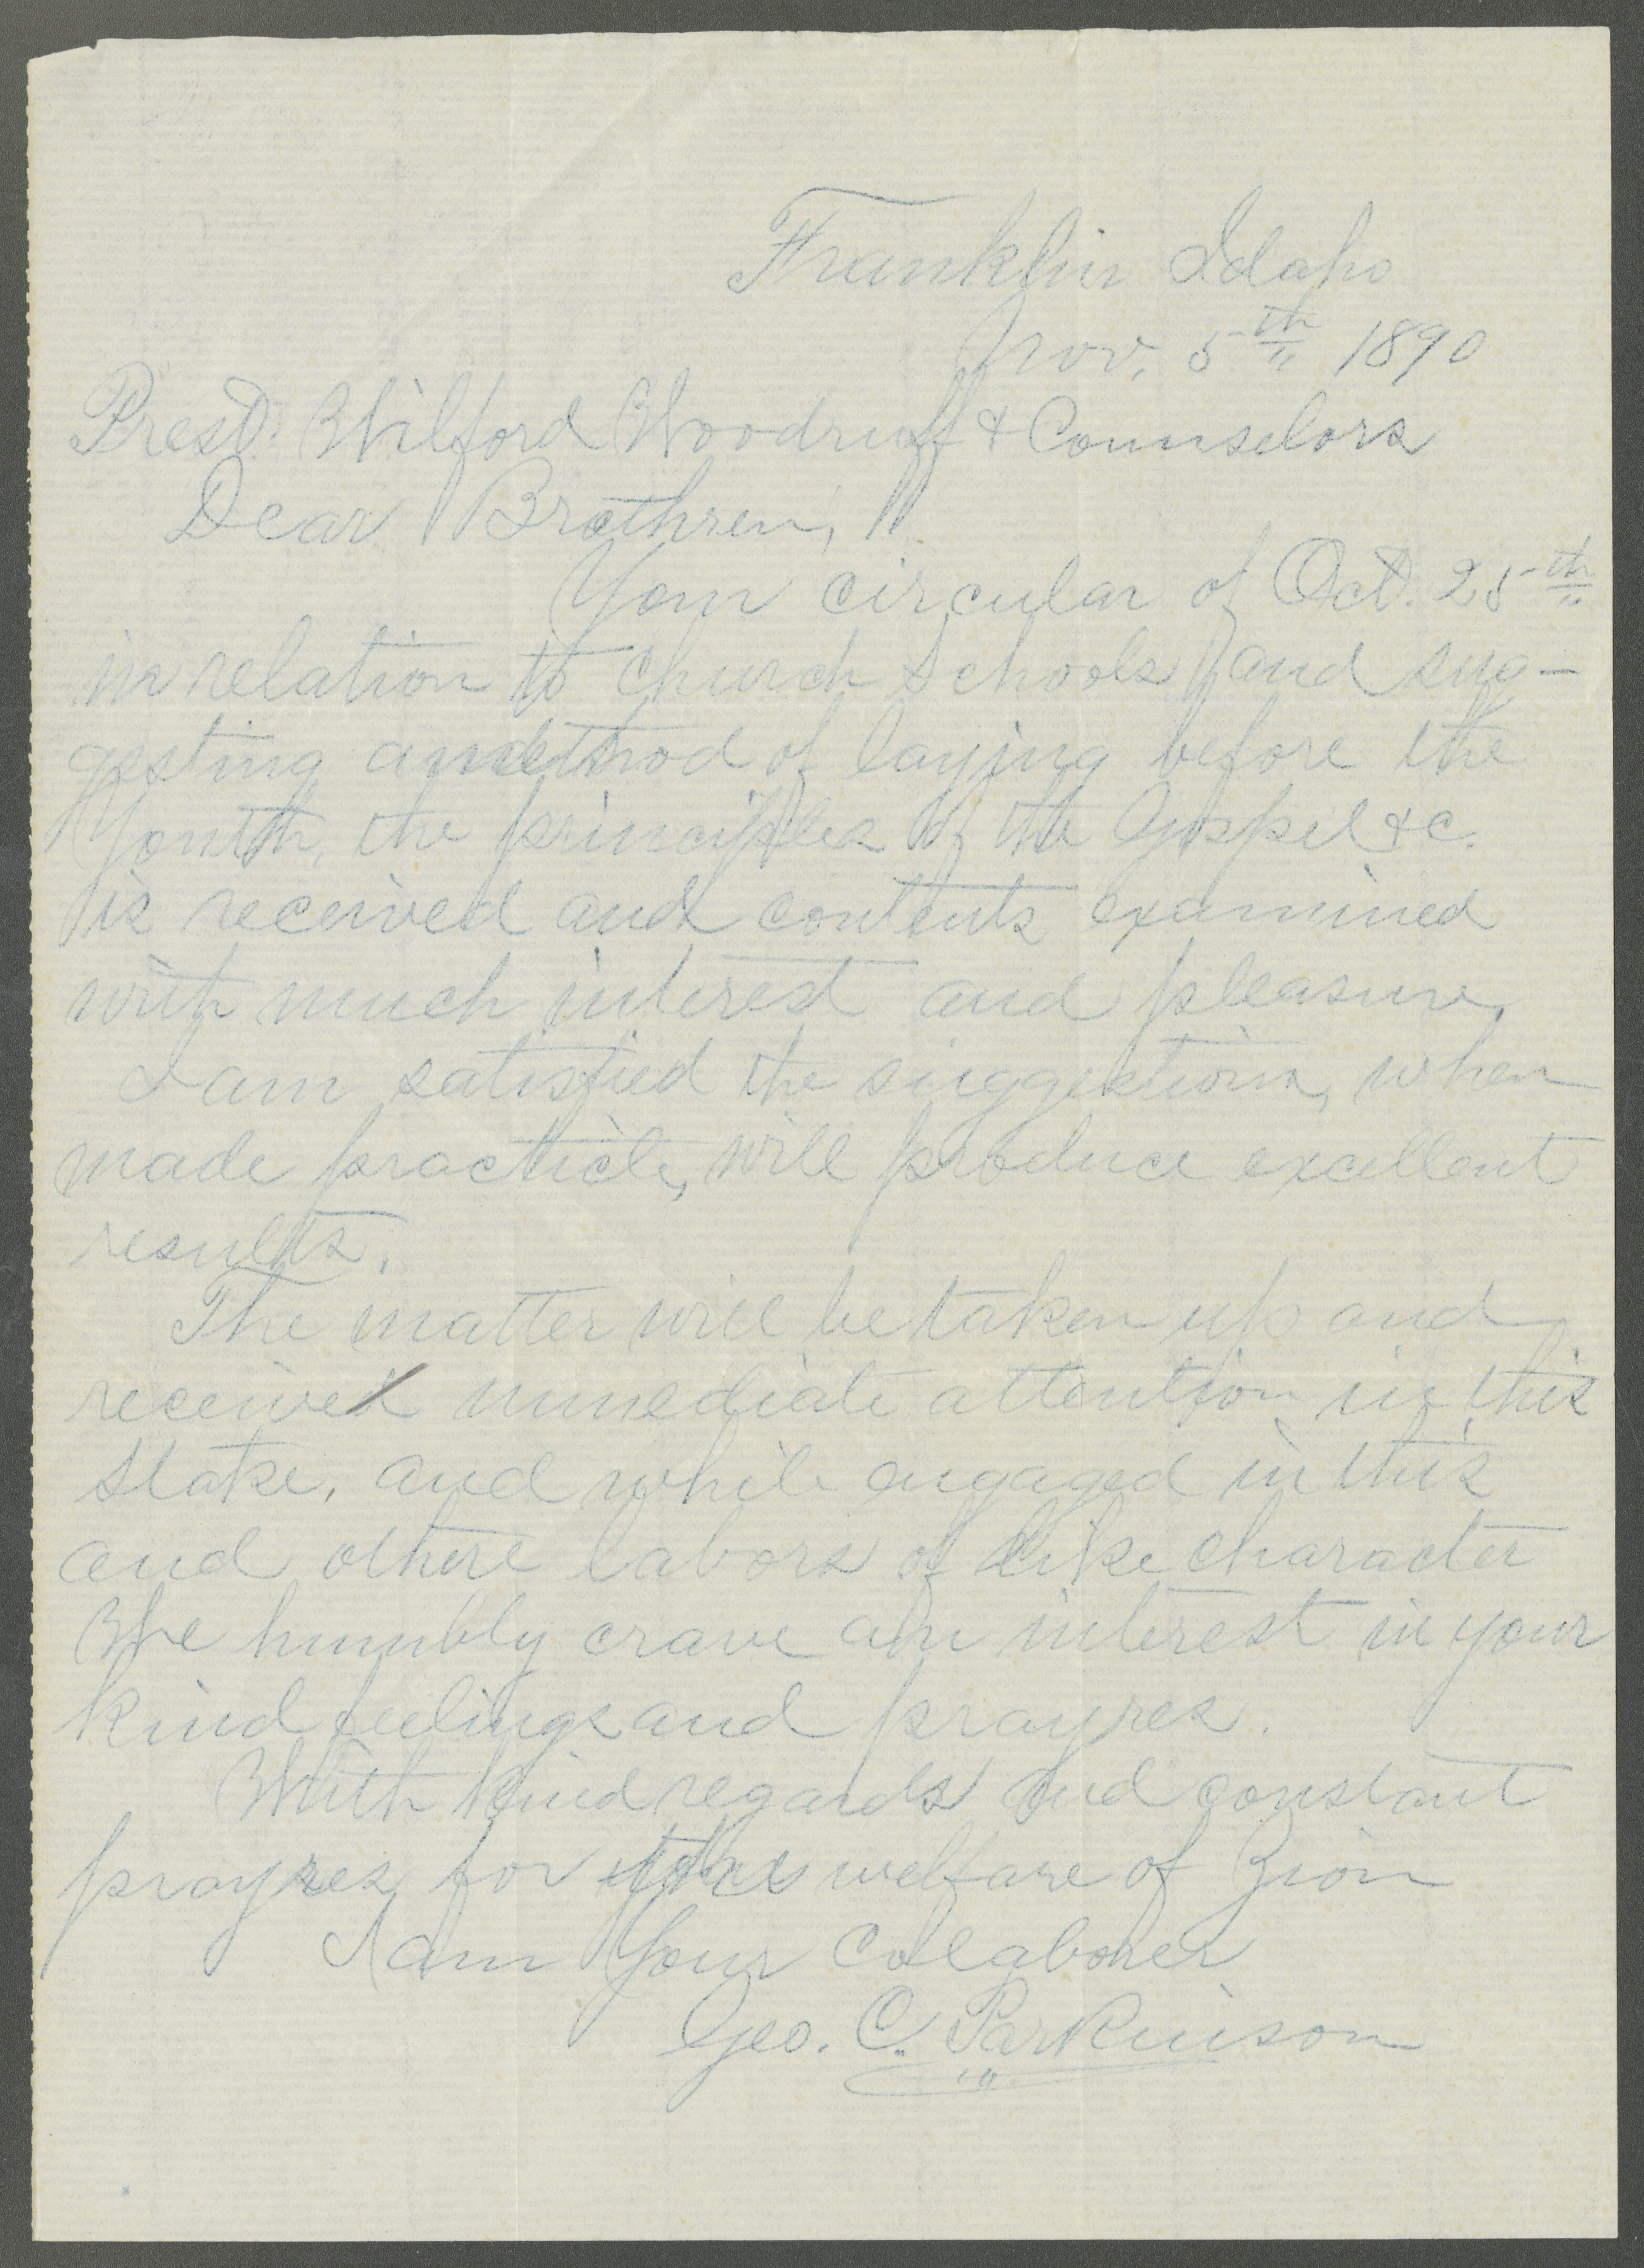 Franklin Idaho
Nov. 5th 1890
Prest. Wilford Woodruff & Counselors
Dear Brethren,
Your circular of Oct. 25th
in relation to church schools and sug-
gesting a method of laying before the
Youth, the principles of the Gospel &c.
is received and contents examined
with much interest and pleasure,
I am satisfied the suggestions, when
made practicle, will produce excellent
results.
The matter will be taken up and
receive immediate attention in this
Stake, and while engaged in this
and othere labors of like character
We humbly crave an interest in your
kind feelings and prayres.
With kind regards and constant
prayres for the welfare of Zion
I am Your Colaborer
Geo. C. Parkinson